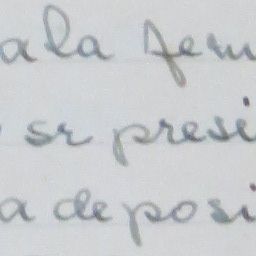 ala fem
sr presi
a de posi